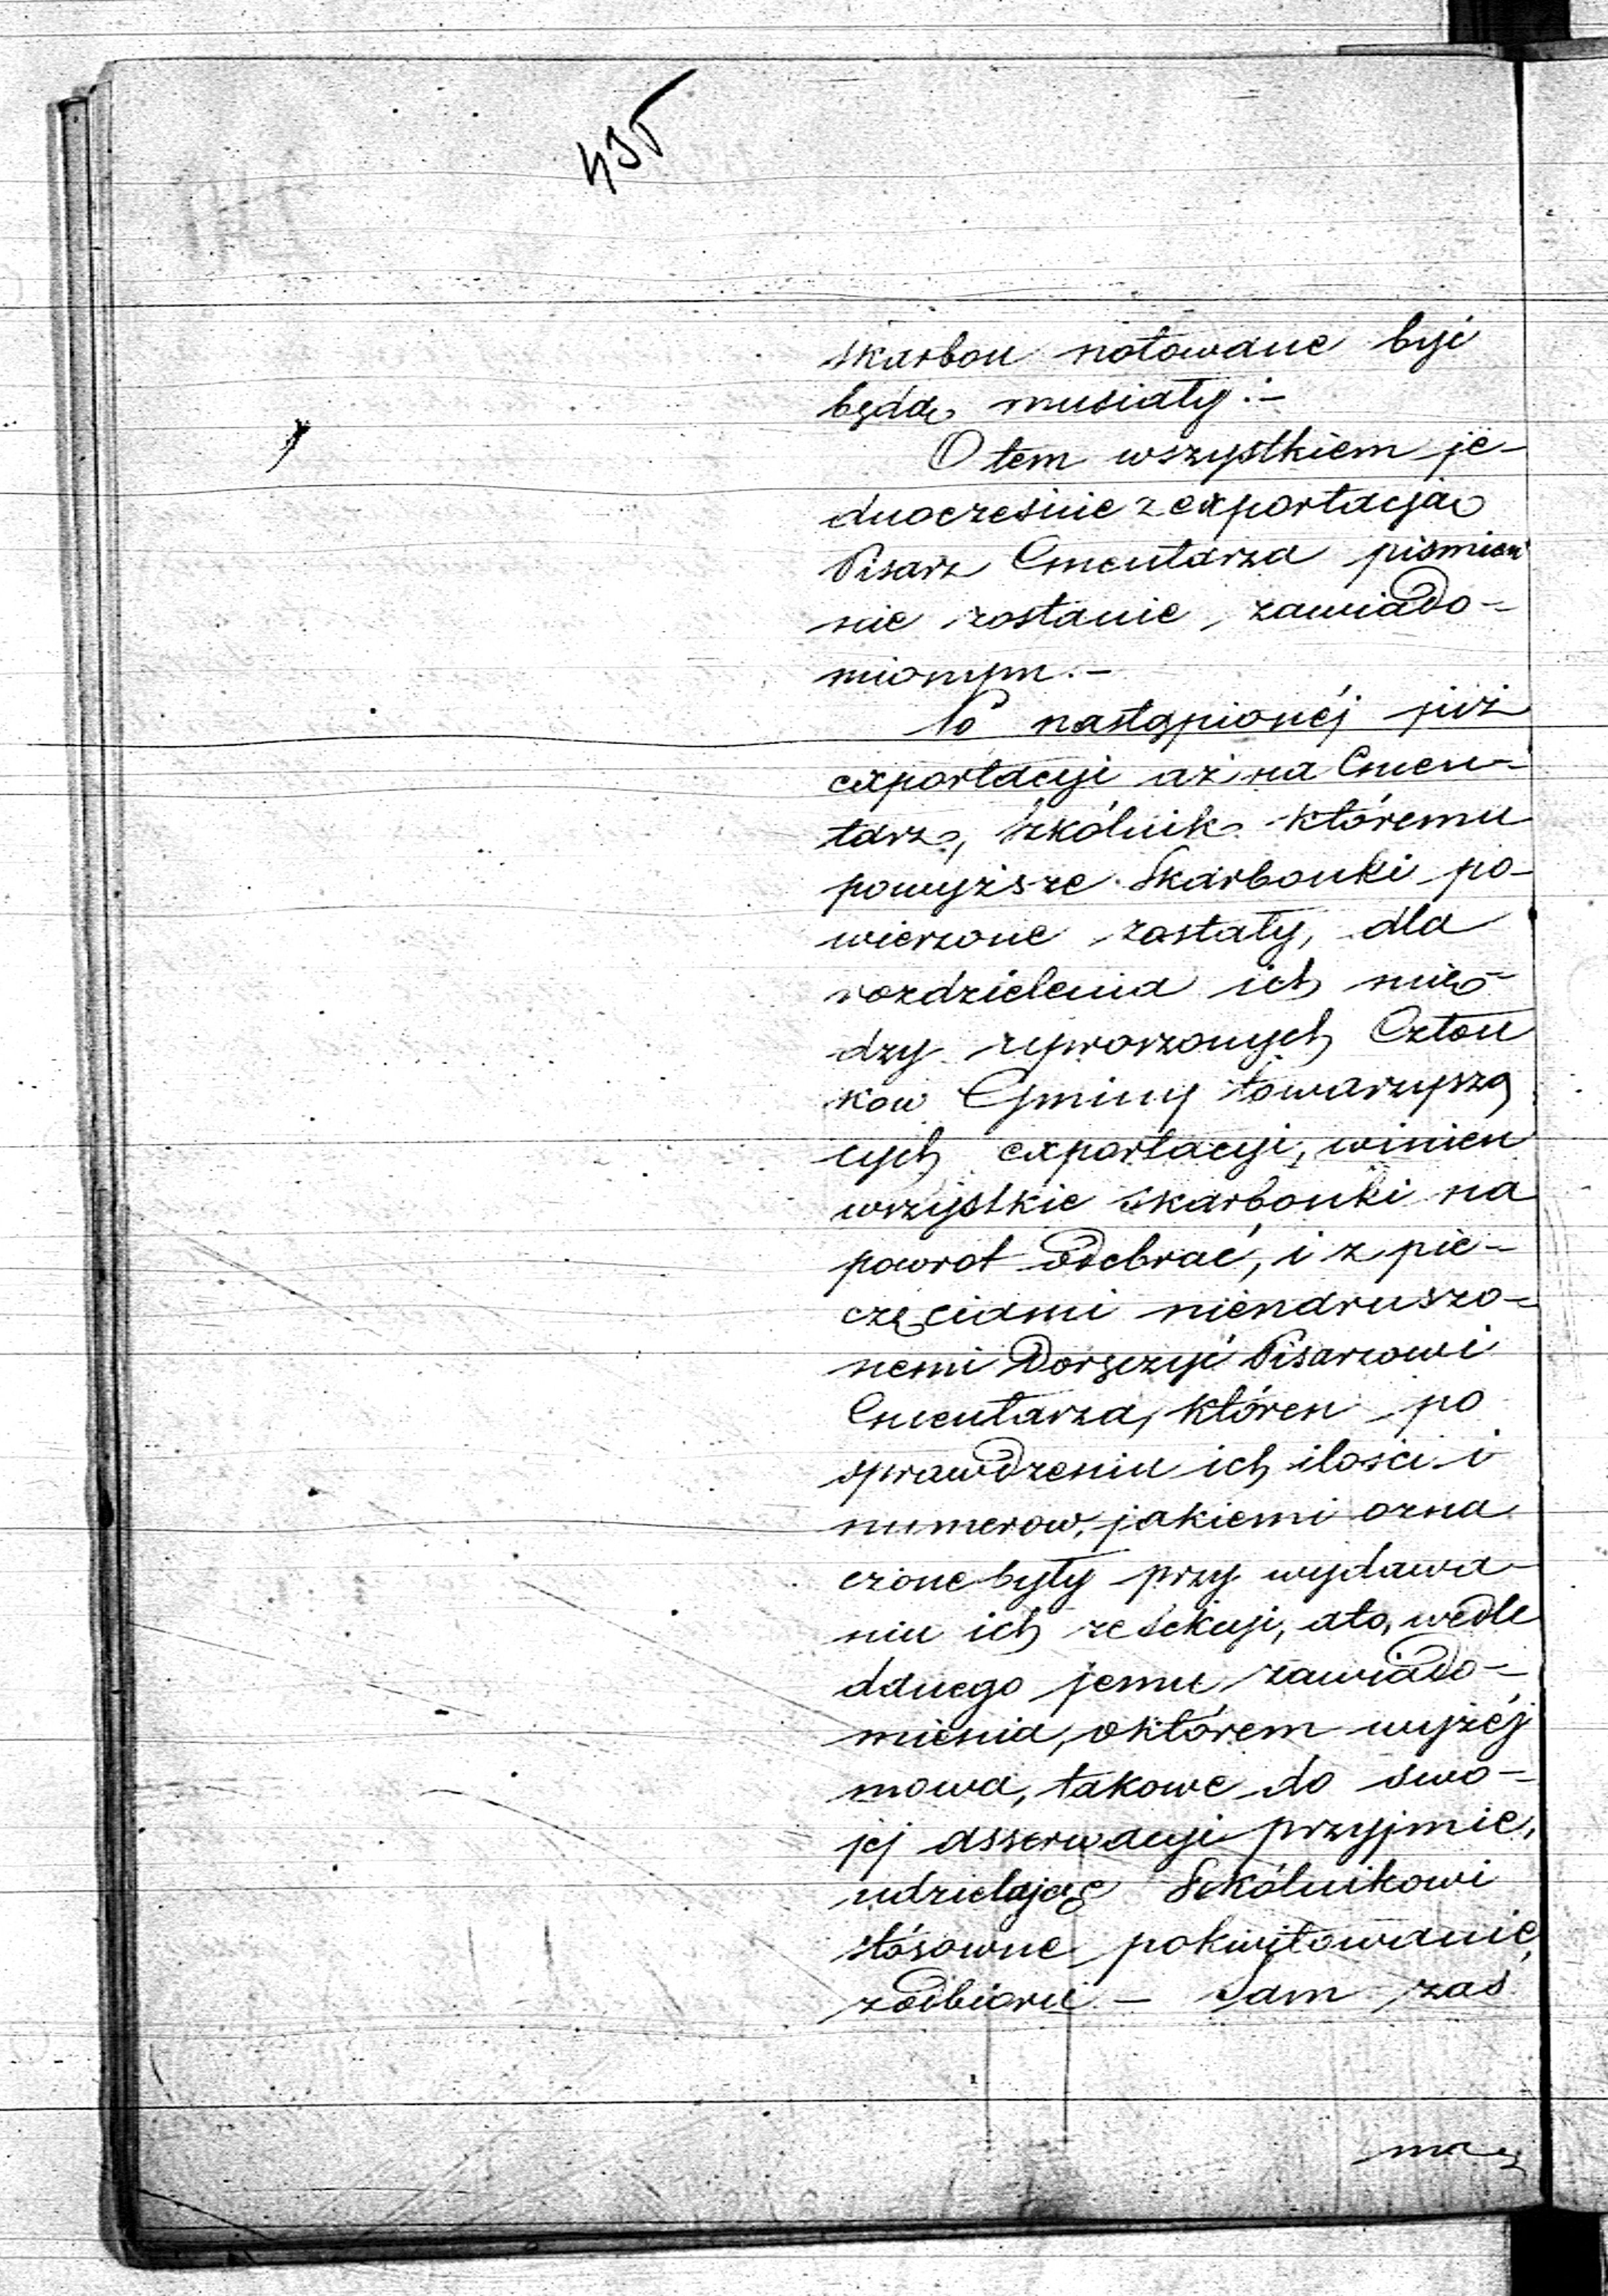 435
skarbon notowane być
będą musiały.–
O tem wszystkiem je-
dnocześnie z exportacją
Pisarz Cmentarza piśmien
nie zostanie zawiado-
mionym.–
Po nastąpionéj już
exportacyi aż na Cmen-
tarz, Szkólnik któremu
powyższe Skarbonki po-
wierzone zostały, dla
rozdzielenia ich mię-
dzy Człon
kow Gminy towarzyszą
cych exportacyi, winien
wszystkie skarbonki na
powrot odebrać, i z pie-
częciami nienaruszo-
nemi Doręczyć Pisarzowi
Cmentarza, któren po
sprawdzeniu ich ilości i
numerow, jakiemi ozna
czone były przy wydawa-
niu ich ze Sekcyi, ato, wedle
danego jemu zawiado-
mienia, o którem wyżéj
mowa, takowe do swo-
jej asserwacyi przyjmie,
udzielając Szkólnikowi
stósowne pokwitowanie
z odbioru – Sam zaś
ma